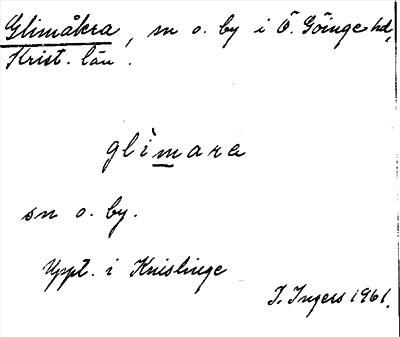 Glimåkra, sn o. by i Ö. Göinge hd,
Krist. län.
glìmara
sn o. by.
Uppt. i Knislinge
I. Ingers 1961.